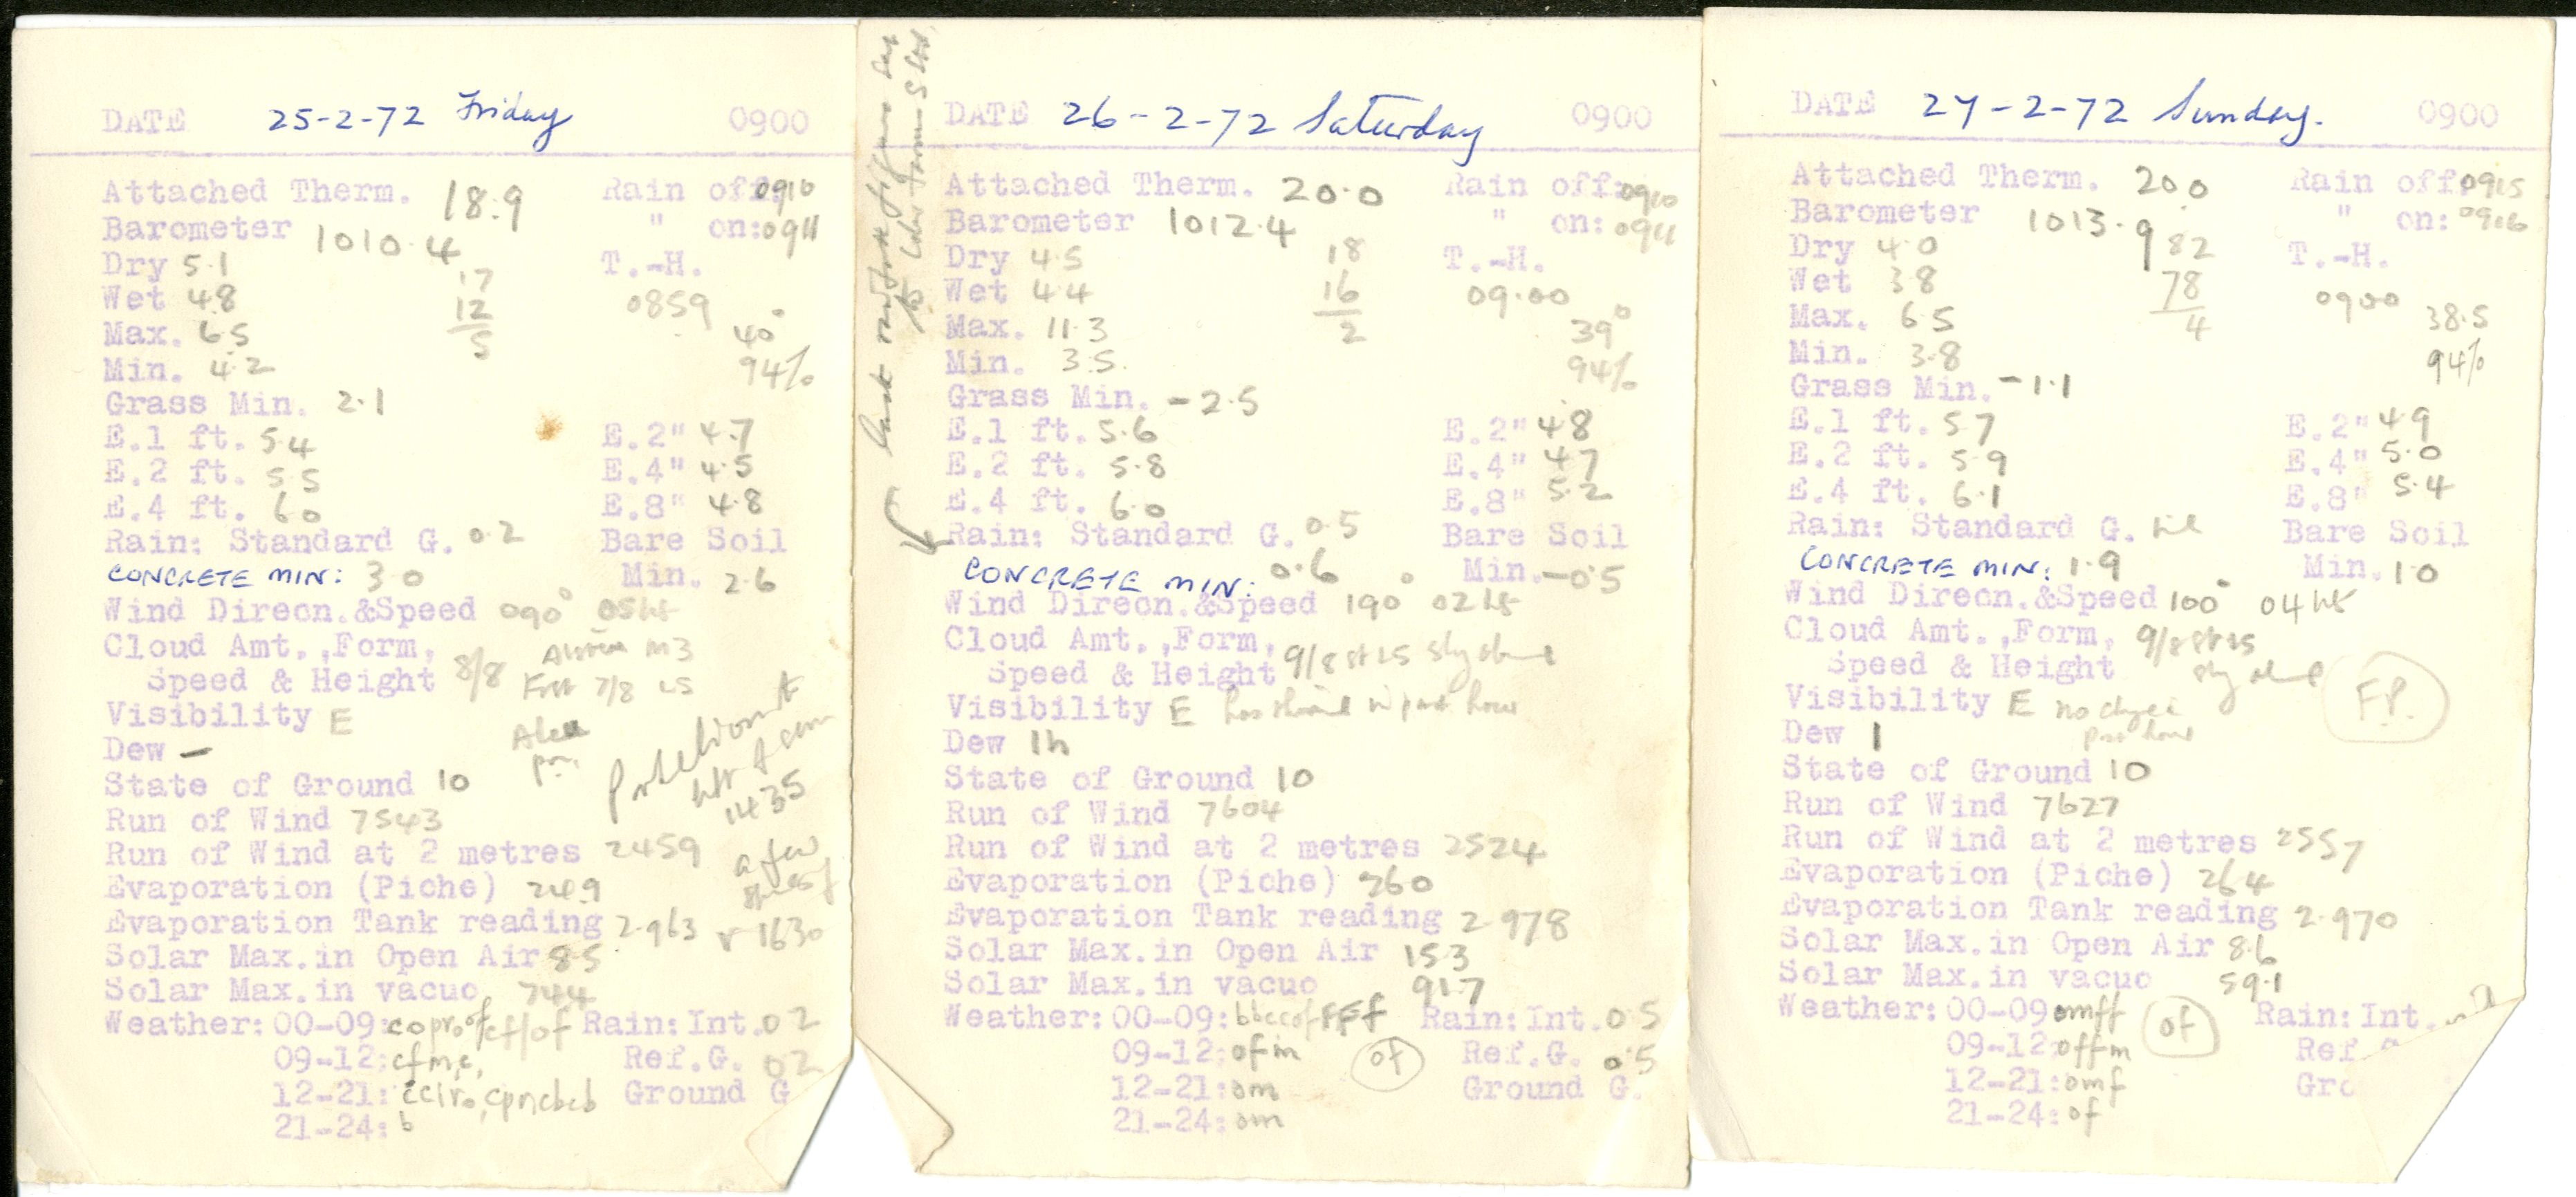 DATE 25-2-72 Friday 0900
Attached Therm. 18.9 Rain off: 0910
Barometer 1010.4 " on: 0911
Dry 5.1 17 T.-H.
Wet 4.8 12 0859
Max. 6.5 5 40°
Min. 4.2 94%
Grass Min. 2.1
E.1 ft. 5.4 E.2" 4.7
E.2 ft. 5.5 E.4" 4.5
E.4 ft. 6.0 E.8" 4.8
Rain: Standard G. 0.2 Bare Soil
CONCRETE MIN: 3.0 Min. 2.6
Wind Direcn.&Speed 090° 05 kts
Cloud Amt.,Form,
Speed & Height 8/8 7/8
Visibility E
Dew —
State of Ground 10
1435
Run of Wind 7543
Run of Wind at 2 metres 2459 a few
Evaporation (Piche) 24.9
Evaporation Tank reading 2.963 1630
Solar Max.in Open Air 8.5
Solar Max.in vacuo 74.4
Weather: 00-09: Rain: Int. 0.2
09-12: Ref.G. 0.2
12-21: Ground G
21-24: b
DATE 26-2-72 Saturday 0900
Attached Therm. 20.0 Rain off: 0910
Barometer 1012.4 " on: 0911
Dry 4.5 18 T.-H.
Wet 4.4 16 09.00
Max. 11.3 2 39°
Min. 3.5 94%
Grass Min. -2.5
E.1 ft. 5.6 E.2" 4.8
E.2 ft. 5.8 E.4" 4.7
E.4 ft. 6.0 E.8" 5.2
Rain: Standard G. 0.5 Bare Soil
CONCRETE MIN: 0.6 Min. -0.5
Wind Direcn.&Speed 190° 02 kts
Cloud Amt.,Form,
Speed & Height 9/8 st sky
Visibility E past hour
Dew 1h
State of Ground 10
Run of Wind 7604
Run of Wind at 2 metres 2524
Evaporation (Piche) 260
Evaporation Tank reading 2.978
Solar Max.in Open Air 15.3
Solar Max.in vacuo 91.7
Weather: 00-09: Rain: Int. 0.5
09-12: ofm of Ref.G. 0.5
12-21: om Ground G.
21-24: om
DATE 27-2-72 Sunday. 0900
Attached Therm. 20.0 Rain off: 0915
Barometer 1013.9 " on: 0916
Dry 4.0 82 T.-H.
Wet 3.8 78 0900
Max. 6.5 4 38.5
Min. 3.8 94%
Grass Min. -1.1
E.1 ft. 5.7 E.2" 4.9
E.2 ft. 5.9 E.4" 5.0
E.4 ft. 6.1 E.8" 5.4
Rain: Standard G. nil Bare Soil
CONCRETE MIN: 1.9 Min. 1.0
Wind Direcn.&Speed 100° 04 kts
Cloud Amt.,Form, 9/8 st
Speed & Height sky
Visibility E no F.P.
Dew 1 past hour
State of Ground 10
Run of Wind 7627
Run of Wind at 2 metres 2557
Evaporation (Piche) 26.4
Evaporation Tank reading 2.970
Solar Max.in Open Air 8.6
Solar Max.in vacuo 59.1
Weather: 00-09 omff of Rain: Int.
09-12: offm Ref.
12-21: omf Gro
21-24: of